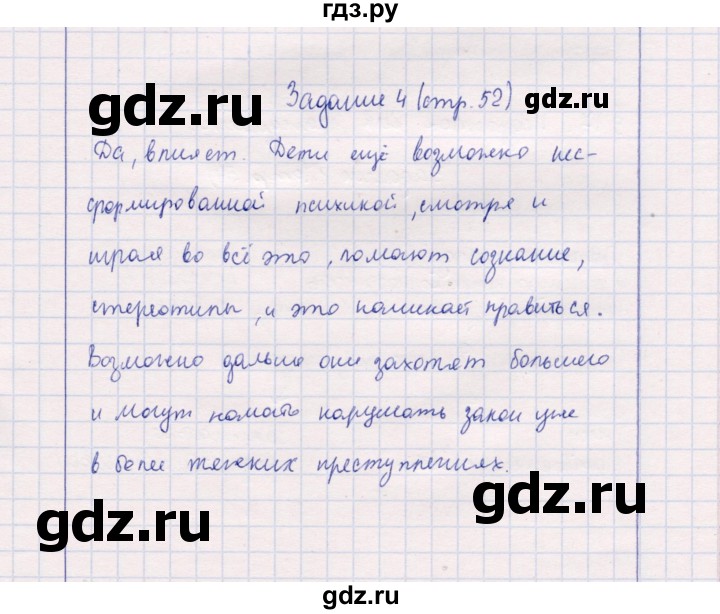 гдз.ру
gdz.ru
Задание 4 (стр. 52)
gdz.ru
Да, влияет. Дети ещё возможно нес-
формированной психикой, смотря и
играя во всё это, ломают сознание,
стереотипы, и это начинает нравиться.
Возможно дальше они захотят большего
и могут начать нарушать закон уже
в более тяжких преступлениях.
gdz.ru
gdz.ru
gdz.ru